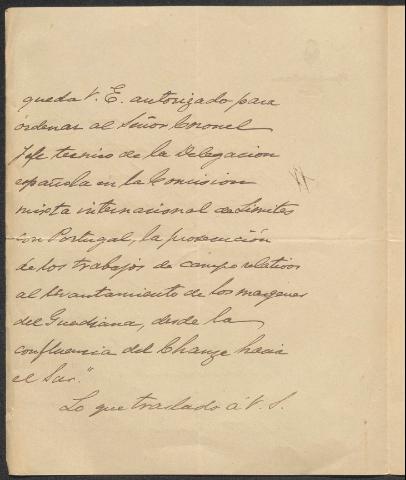 queda V. E. autorizado para
ordenar al Señor Coronel
Jefe tecnico de la Delegacion
española en la Comision
mixta internacional de Limites
con Portugal, la prosecución
de los trabajos de campo relativos
al levantamiento de los margenes
del Guadiana, desde la
confluencia del Chanza hacia
el Sur."
Lo que traslado á V. S.